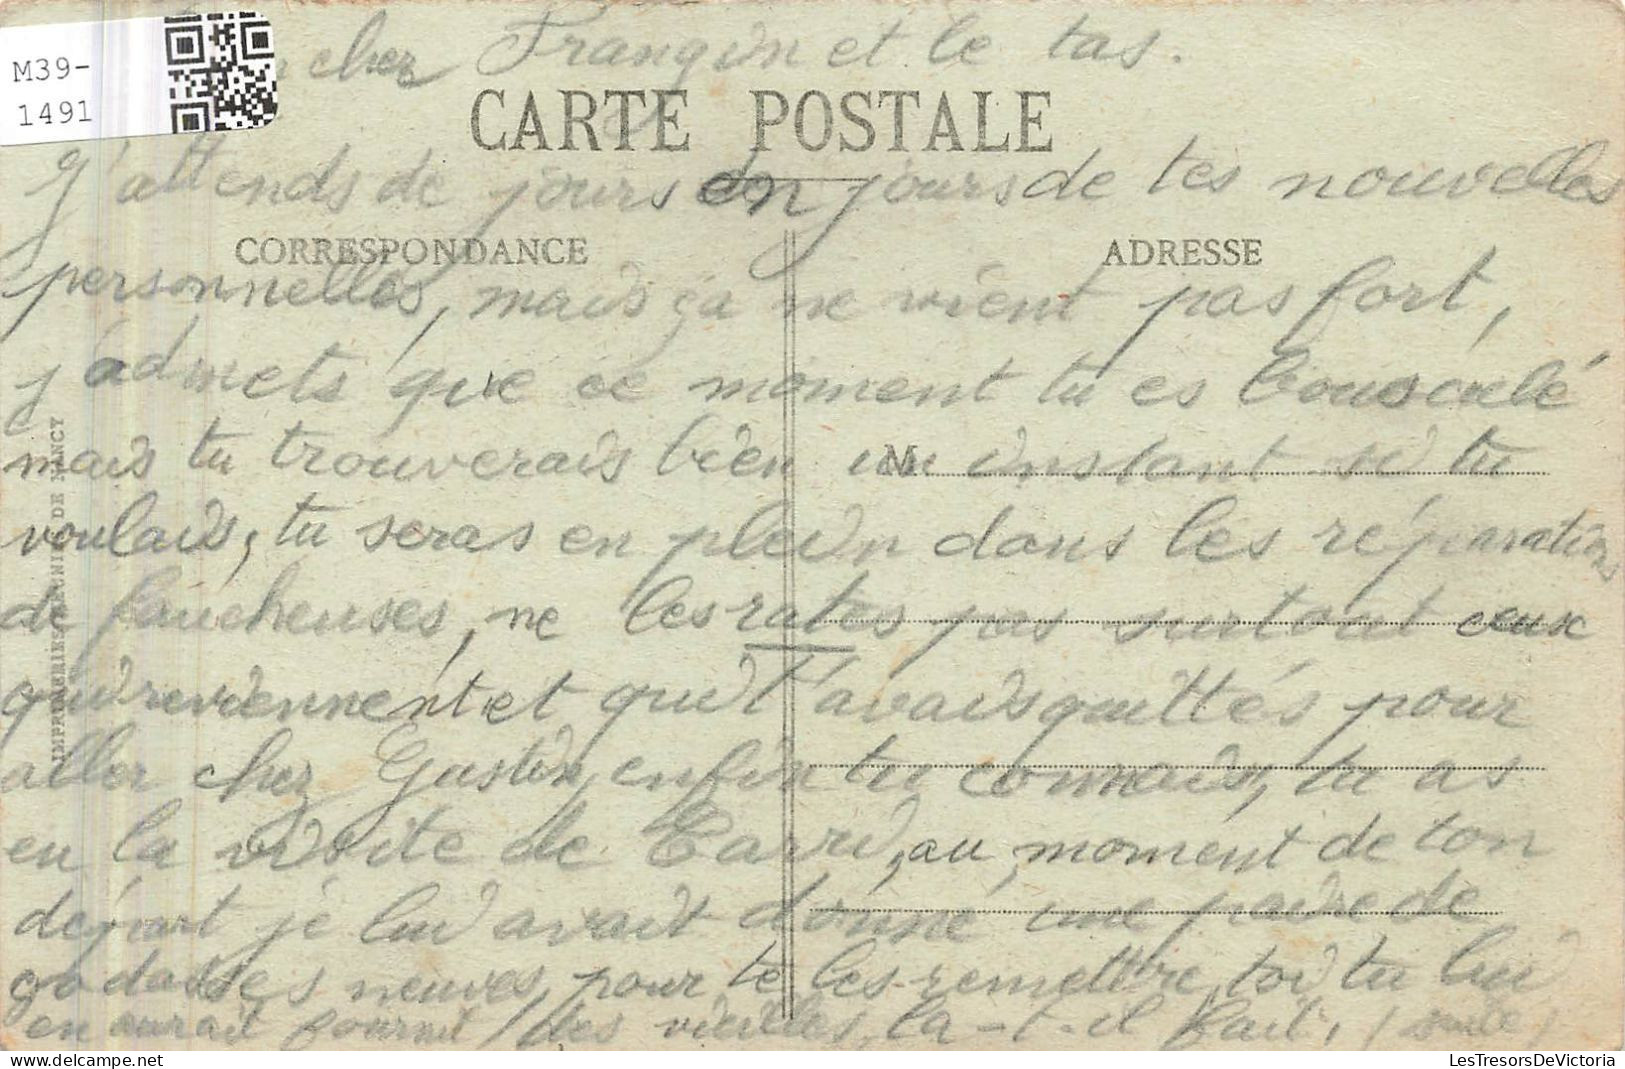 M39-
1491
cher Frangin et le tas.
CARTE POSTALE
J'attends de jours en jours de tes nouvelles
CORRESPONDANCE
ADRESSE
personnelles, mais ça ne vient pas fort,
j'admets que ce moment tu es bousculé
mais tu trouverais bien un instant si tu
M
voulais, tu seras en plein dans les réparations
de faucheuses, ne les rates pas surtout ceux
qui reviennent et qui t'avais quittés pour
aller chez Gaston, enfin tu connais, tu as
eu la visite de Carri, au moment de ton
départ je lui avait donné une paire de
godasses neuves pour te les remettre, toi tu lui
en aurait fournit des vieilles, la-t-il fait, (suite)
IMPRIMERIES REUNIES DE NANCY
LesTresorsDeVictoria